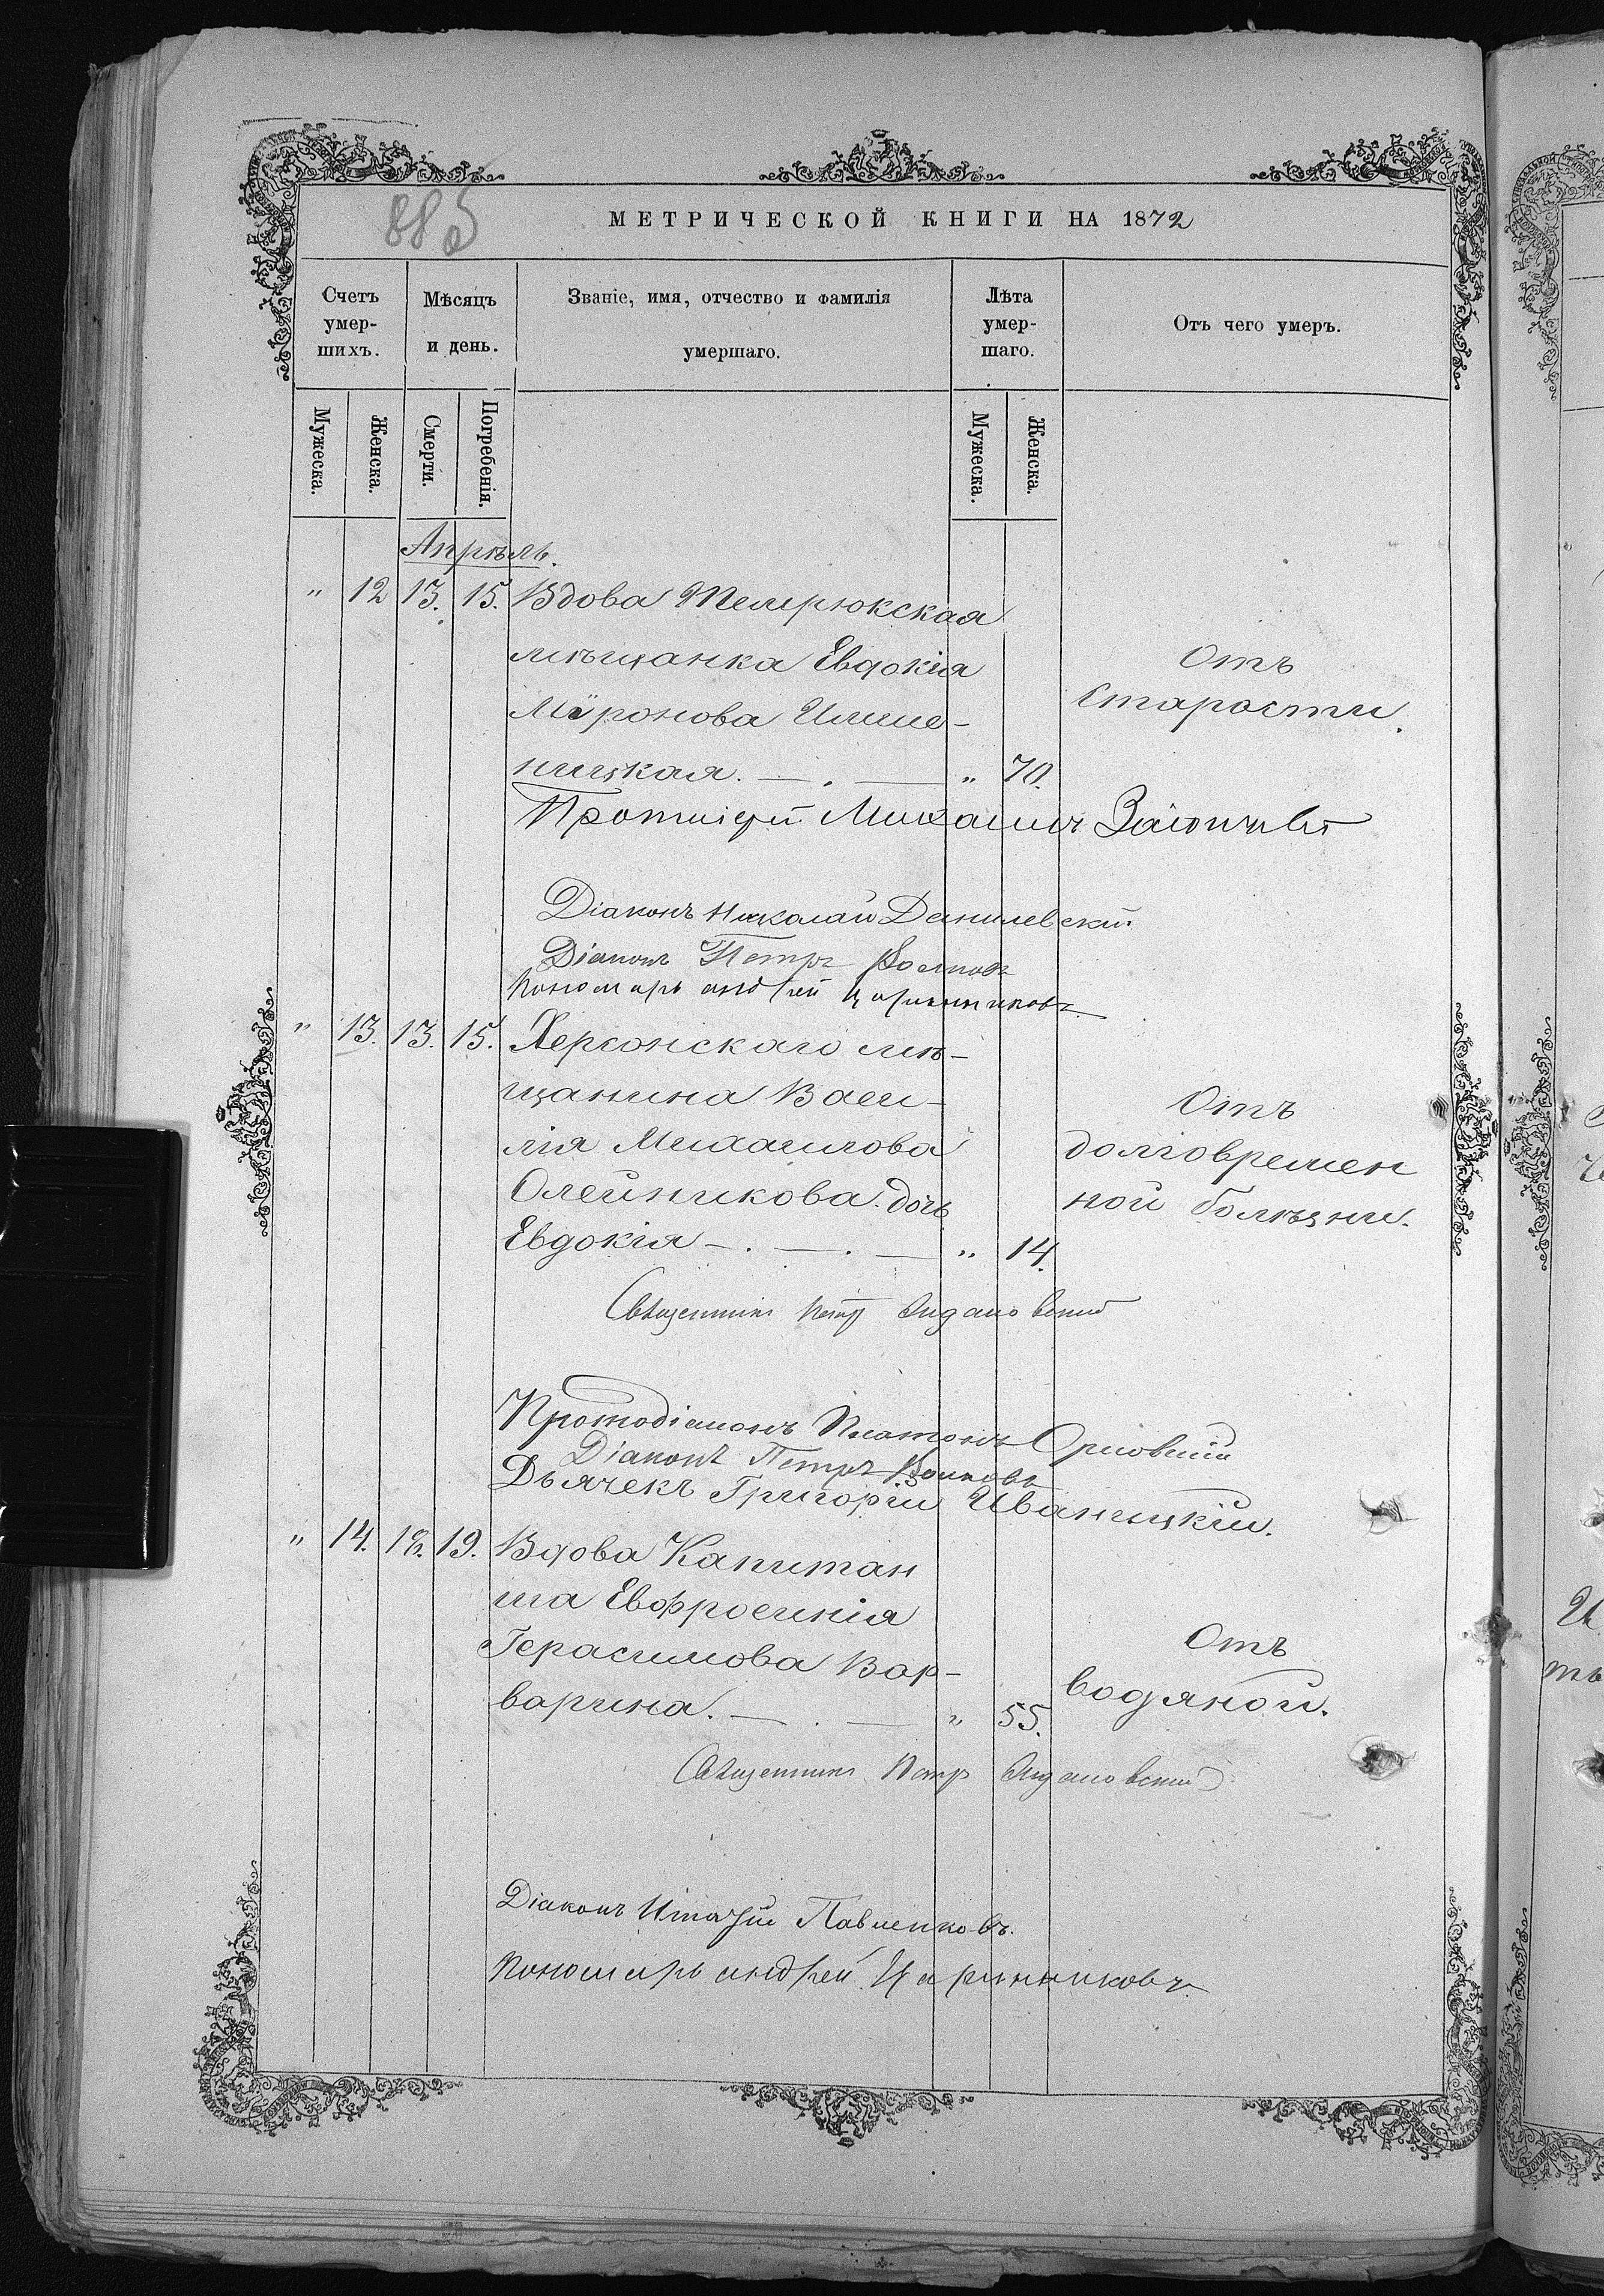 885
МЕТРИЧЕСКОЙ КНИГИ НА 1872
Счетъ умер-шихъ.
Мѣсяцъ и день.
Званіе, имя, отчество и фамилія умершаго.
Лѣта умер-шаго.
Отъ чего умеръ.
Мужеска. Женска. Смерти. Погребенія. Мужеска. Женска.
Апрѣль.
" 12 13. 15. Вдова Темрюкская
мѣщанка Евдокія
Отъ
Мѵронова Ишме-
Старости.
ницкая. — . — " 70.
Протоіерей Михаилъ
Діаконъ Николай Данилевскій
Діаконъ Петръ Волковъ
Пономарь Андрей Царинниковъ
" 13. 13. 15. Херсонскаго мѣ-
щанина Васи-
Отъ
лія Михаилова
долговремен
Олейникова дочь
ной болѣзни.
Евдокія — . — . — " 14.
Священникъ Петръ
Протодіаконъ Платонъ Орловскій
Діаконъ Петръ Волковъ
Дьячекъ Григорій Иваницкій.
" 14. 18. 19. Вдова Капитан
ша Евфросинія
Отъ
Герасимова Вар-
водяной.
варина. — . — " 55.
Священникъ Петръ
Діаконъ Игнатій Павленковъ.
Пономарь Андрей Царинниковъ